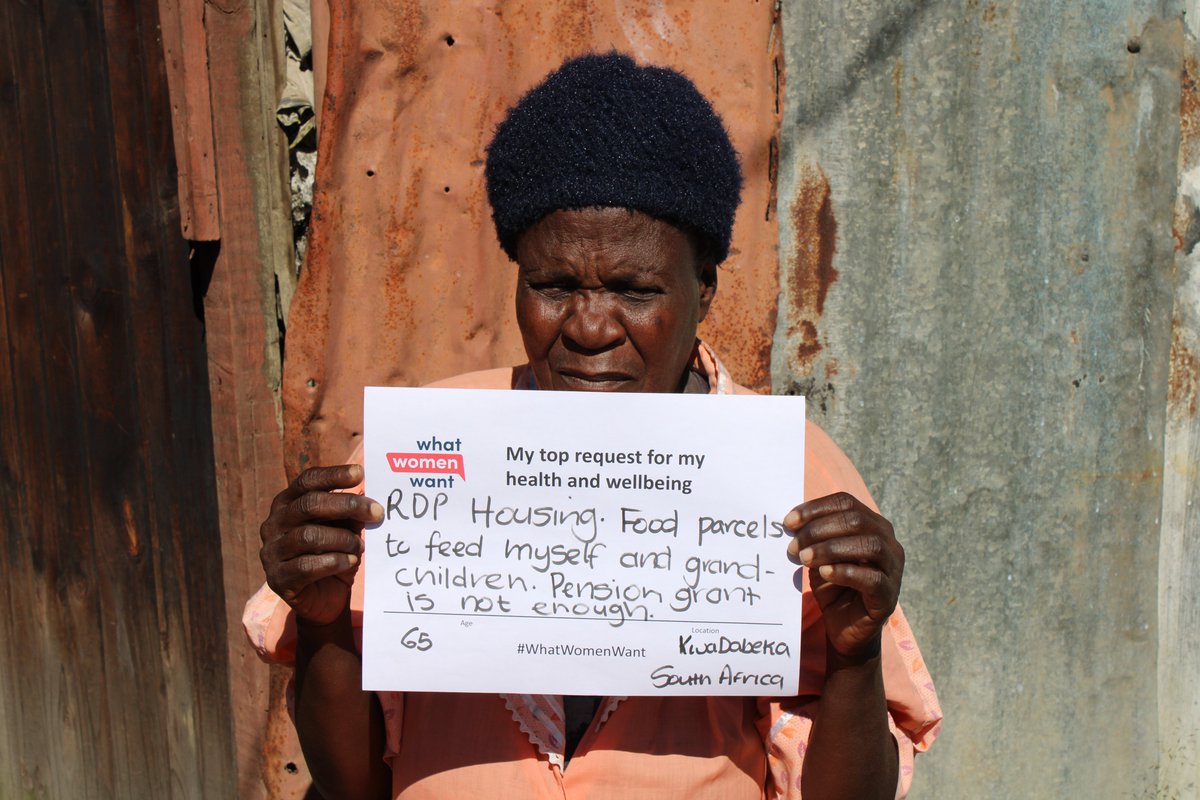 what
women
want
My top request for my
health and wellbeing
RDP Housing. Food parcels
to feed myself and grand-
children. Pension grant
is not enough.
Age
Location
65
#WhatWomenWant
KwaDabeka
South Africa